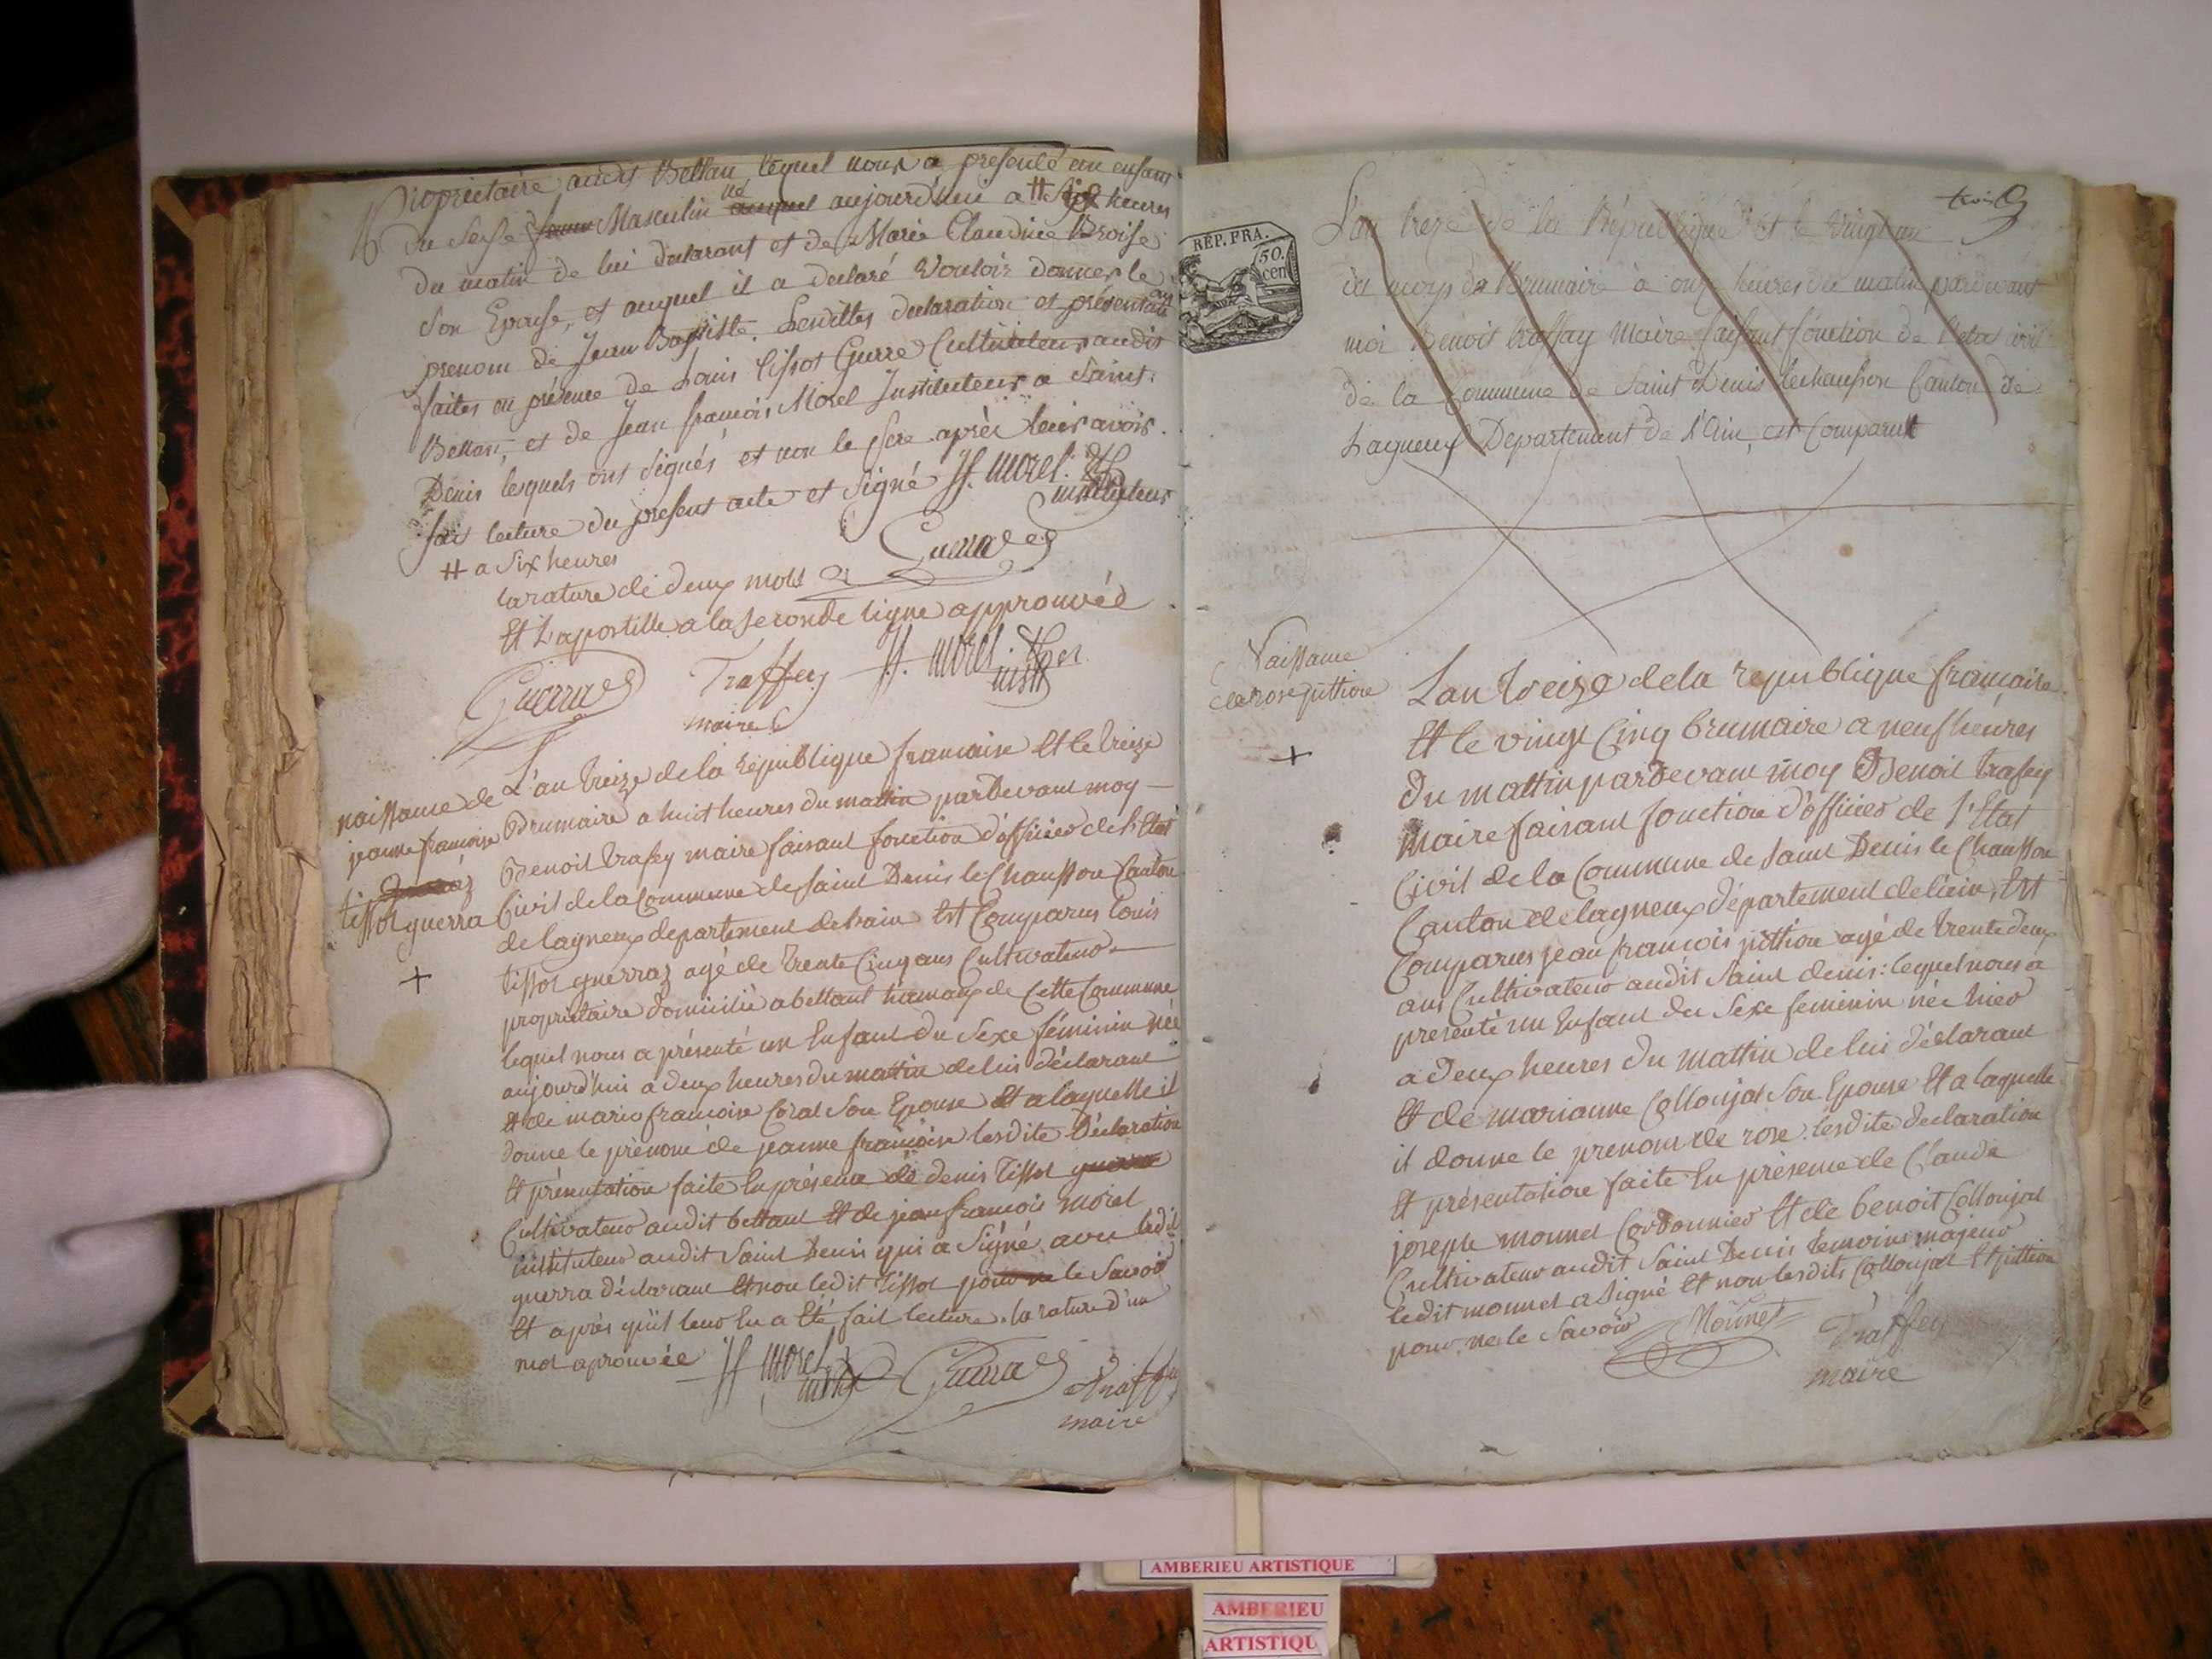 Proprietaire audit Bettan, lequel nous a presenté un enfant
du Sexe Masculin né auquel aujourd'hui a # Six heures
du matin de lui declarant et de Marie Claudine Broise
son Epouse, et auquel il a declaré Vouloir donner le
prenom de Jean Baptiste. Lesdittes declaration et présentation
faites en présence de Louis Tissot Guerre Cultivateur audit
Bettan, et de Jean françois Morel Instituteur a Saint
Denis lesquels ont signés et non le Pere après leur avoir
fait lecture du present acte et signé Jf. morel
instituteur
Guerra
# a Six heures
la rature de deux mots
Et L'apostille a la seconde ligne approuvéé
Guerra Traffey Jf. morel
maire
naissance de
jeanne françoise
tissot guerra
+
L'an treize de la République francaise Et le treize
Brumaire a huit heures du mattin pardevant moy
Benoit trafey maire faisant fonction d'officier de L'Etat
Civil de la Commune de Saint Denis le Chausson Canton
de lagneux departement de lain Est Comparus Louis
tissot guerraz agé de trente Cinq ans Cultivateur
propriétaire domicilié a bettant hamaux de Cette Commune
lequel nous a présenté un Enfant du Sexe féminin née
aujourd'hui a deux heures du mattin de lui déclarant
Et de marie francoise Coral Son Epouse Et a laquelle il
donne le prénom de jeanne françoise lesdite Déclaration
Et présentation faite En présence de denis Tissot guerra
Cultivateur audit bettant Et de jean francois morel
instituteur audit Saint Denis qui a Signé avec ledit
guerra déclarant Et non ledit Tissot pour ne le Savoir
Et après qu'il leur En a Eté fait lecture. la rature d'un
mot aprouvée Jf morel Guerra Traffey
maire
trois
REP. FRA.
50.
cen
L'an treze de la République et le vingt un
du moys de Brumaire à onze heures du matin pardevant
moi Benoit traffay Maire faisant fonction de l'etat civil
de la Commune de Saint Denis lechausson Canton de
Lagneux Departement de l'Ain, est Comparut
Naissance
de rose juttion
+
Lan treize de la republique francaise
Et le vingt Cinq brumaire a neuf heures
du mattin pardevant moy Benoit trafey
Maire faisant fonction d'officier de l'Etat
Civil de la Commune de Saint Denis le Chausson
Canton de lagneux département de l'ein, Est
Comparus jean francois juttion agé de trente deux
ans Cultivateur audit Saint denis: lequel nous a
presenté un Enfant du Sexe feminin née hier
a deux heures du mattin de lui déclarant
Et de marianne Collonjat Son Epouse Et a laquelle
il donne le prenom de rose. lesdite declaration
Et présentation faite En présence de Claude
joseph monnet Cordonnier Et de benoit Collonjat
Cultivateur audit Saint Denis temoins majeur
ledit monnet a Signé Et non lesdits Collonjat Et juttion
pour ne le Savoir Monnet Traffey
maire
AMBERIEU ARTISTIQUE
AMBERIEU
ARTISTIQU